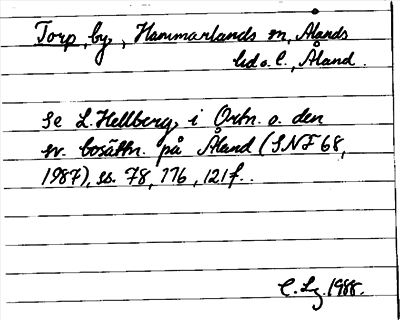 Torp, by, Hammarlands sn, Ålands
hd o. l., Åland.
Se L. Hellberg, i Ortn. o. den
sv. bosättn. på Åland (SNF 68,
1987), ss. 78, 116, 121f..
C. Lg. 1988.